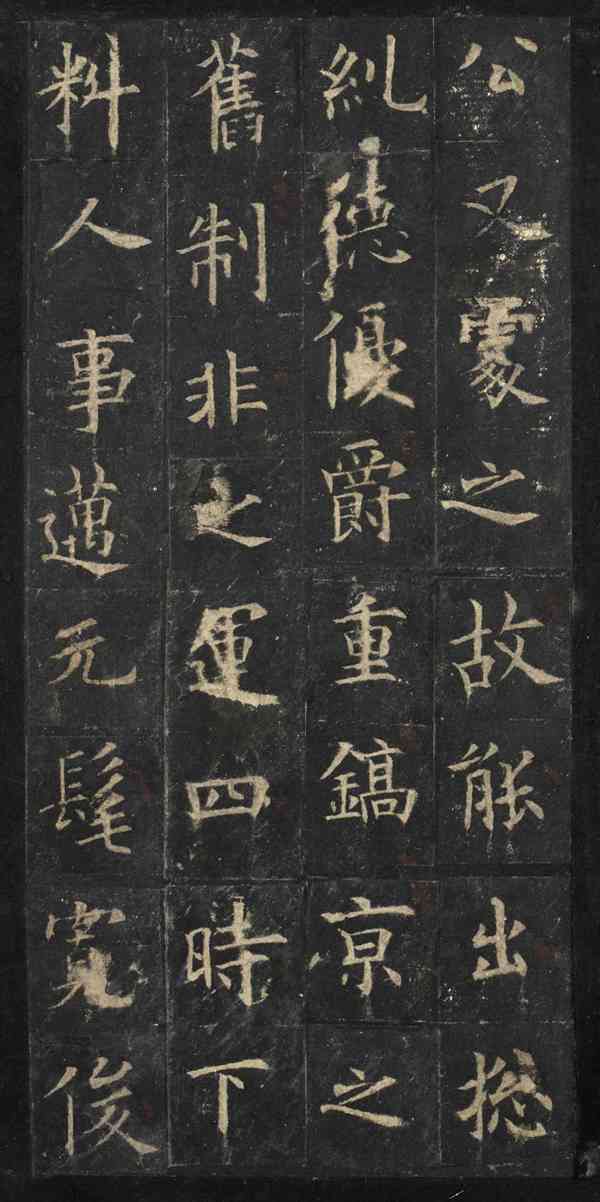 公又之故能出捴
糺德優爵重鎬亰之
舊制非之運四時下
料人事邁元髦寬俊